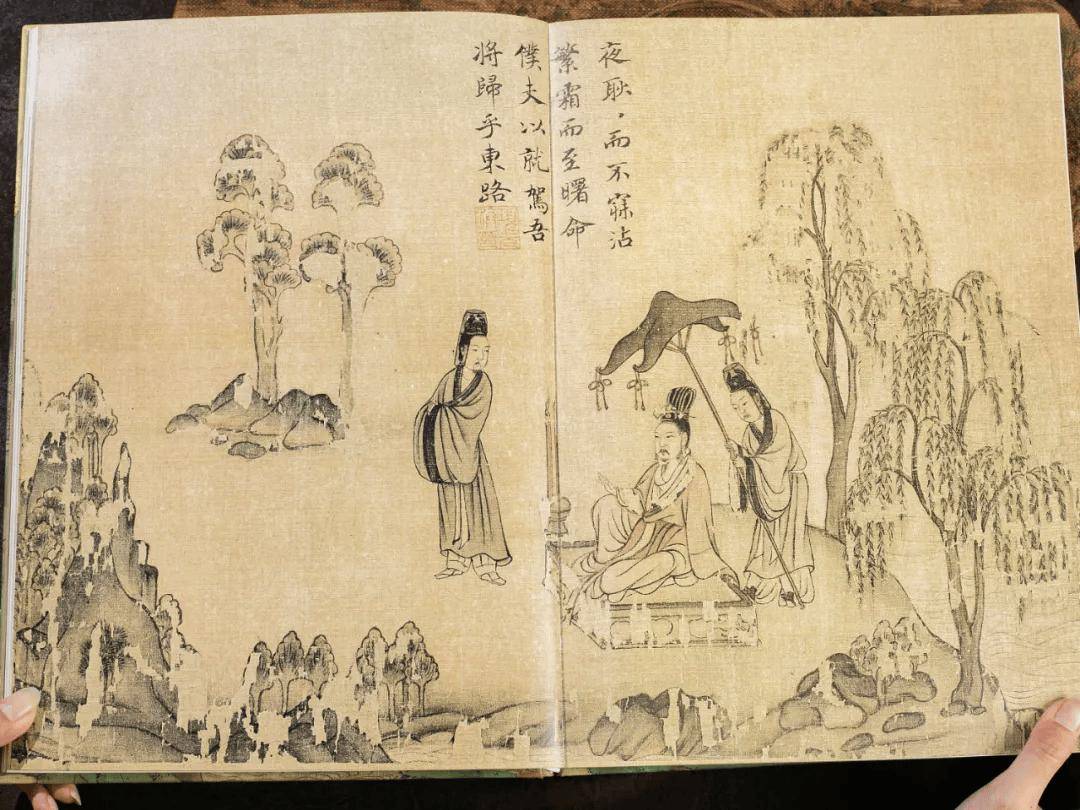 夜耿，而不寐沾
繁霜而至曙命
僕夫以就駕吾
将歸乎東路